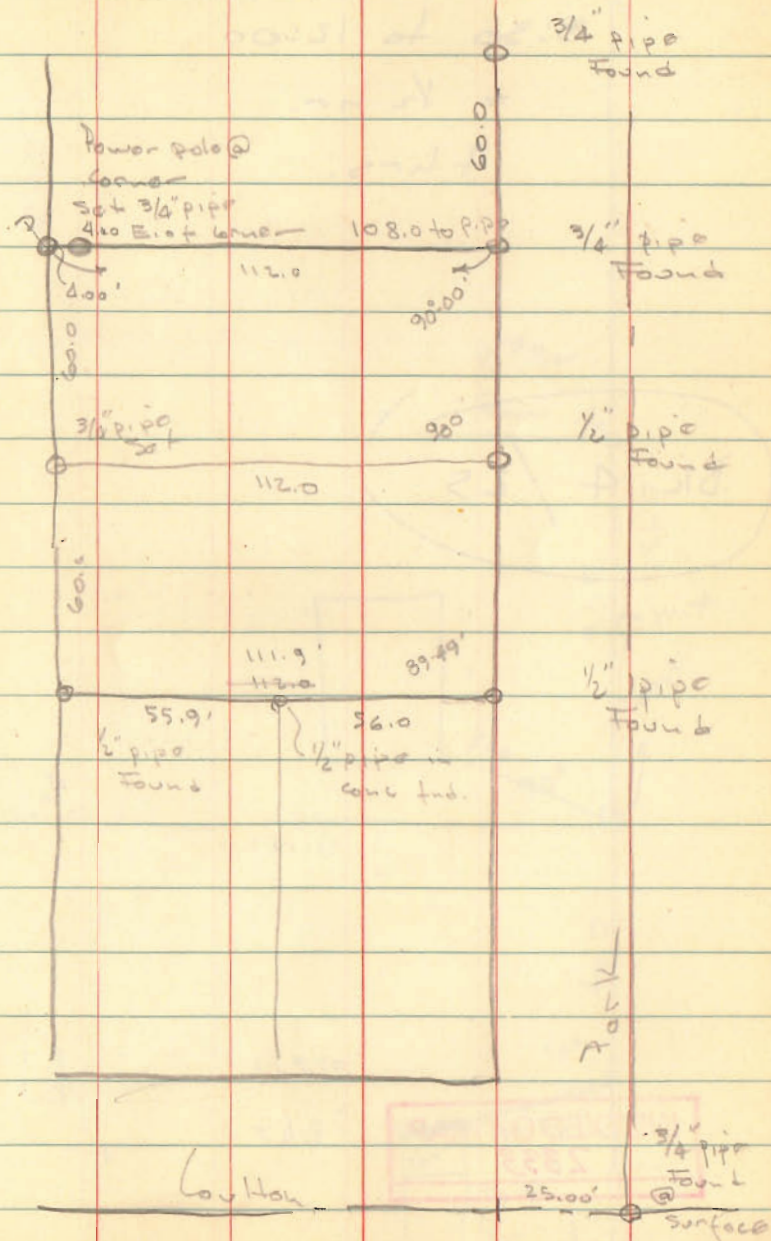 3/4" pipe
Found
60.0
Power pole @
Corner
Set 3/4" pipe
4.00 E. of Corner
108.0 to pipe
3/4" pipe
Found
4.00'
112.0
90°00'
60.0
3/4" pipe
Set
90°
1/2" pipe
Found
112.0
60.0
111.9'
112.0
89-49'
1/2" pipe
Found
55.9'
56.0
1/2" pipe
Found
1/2" pipe in
conc fnd.
3/4" pipe
Found
@
Surface
Coulton
25.00'